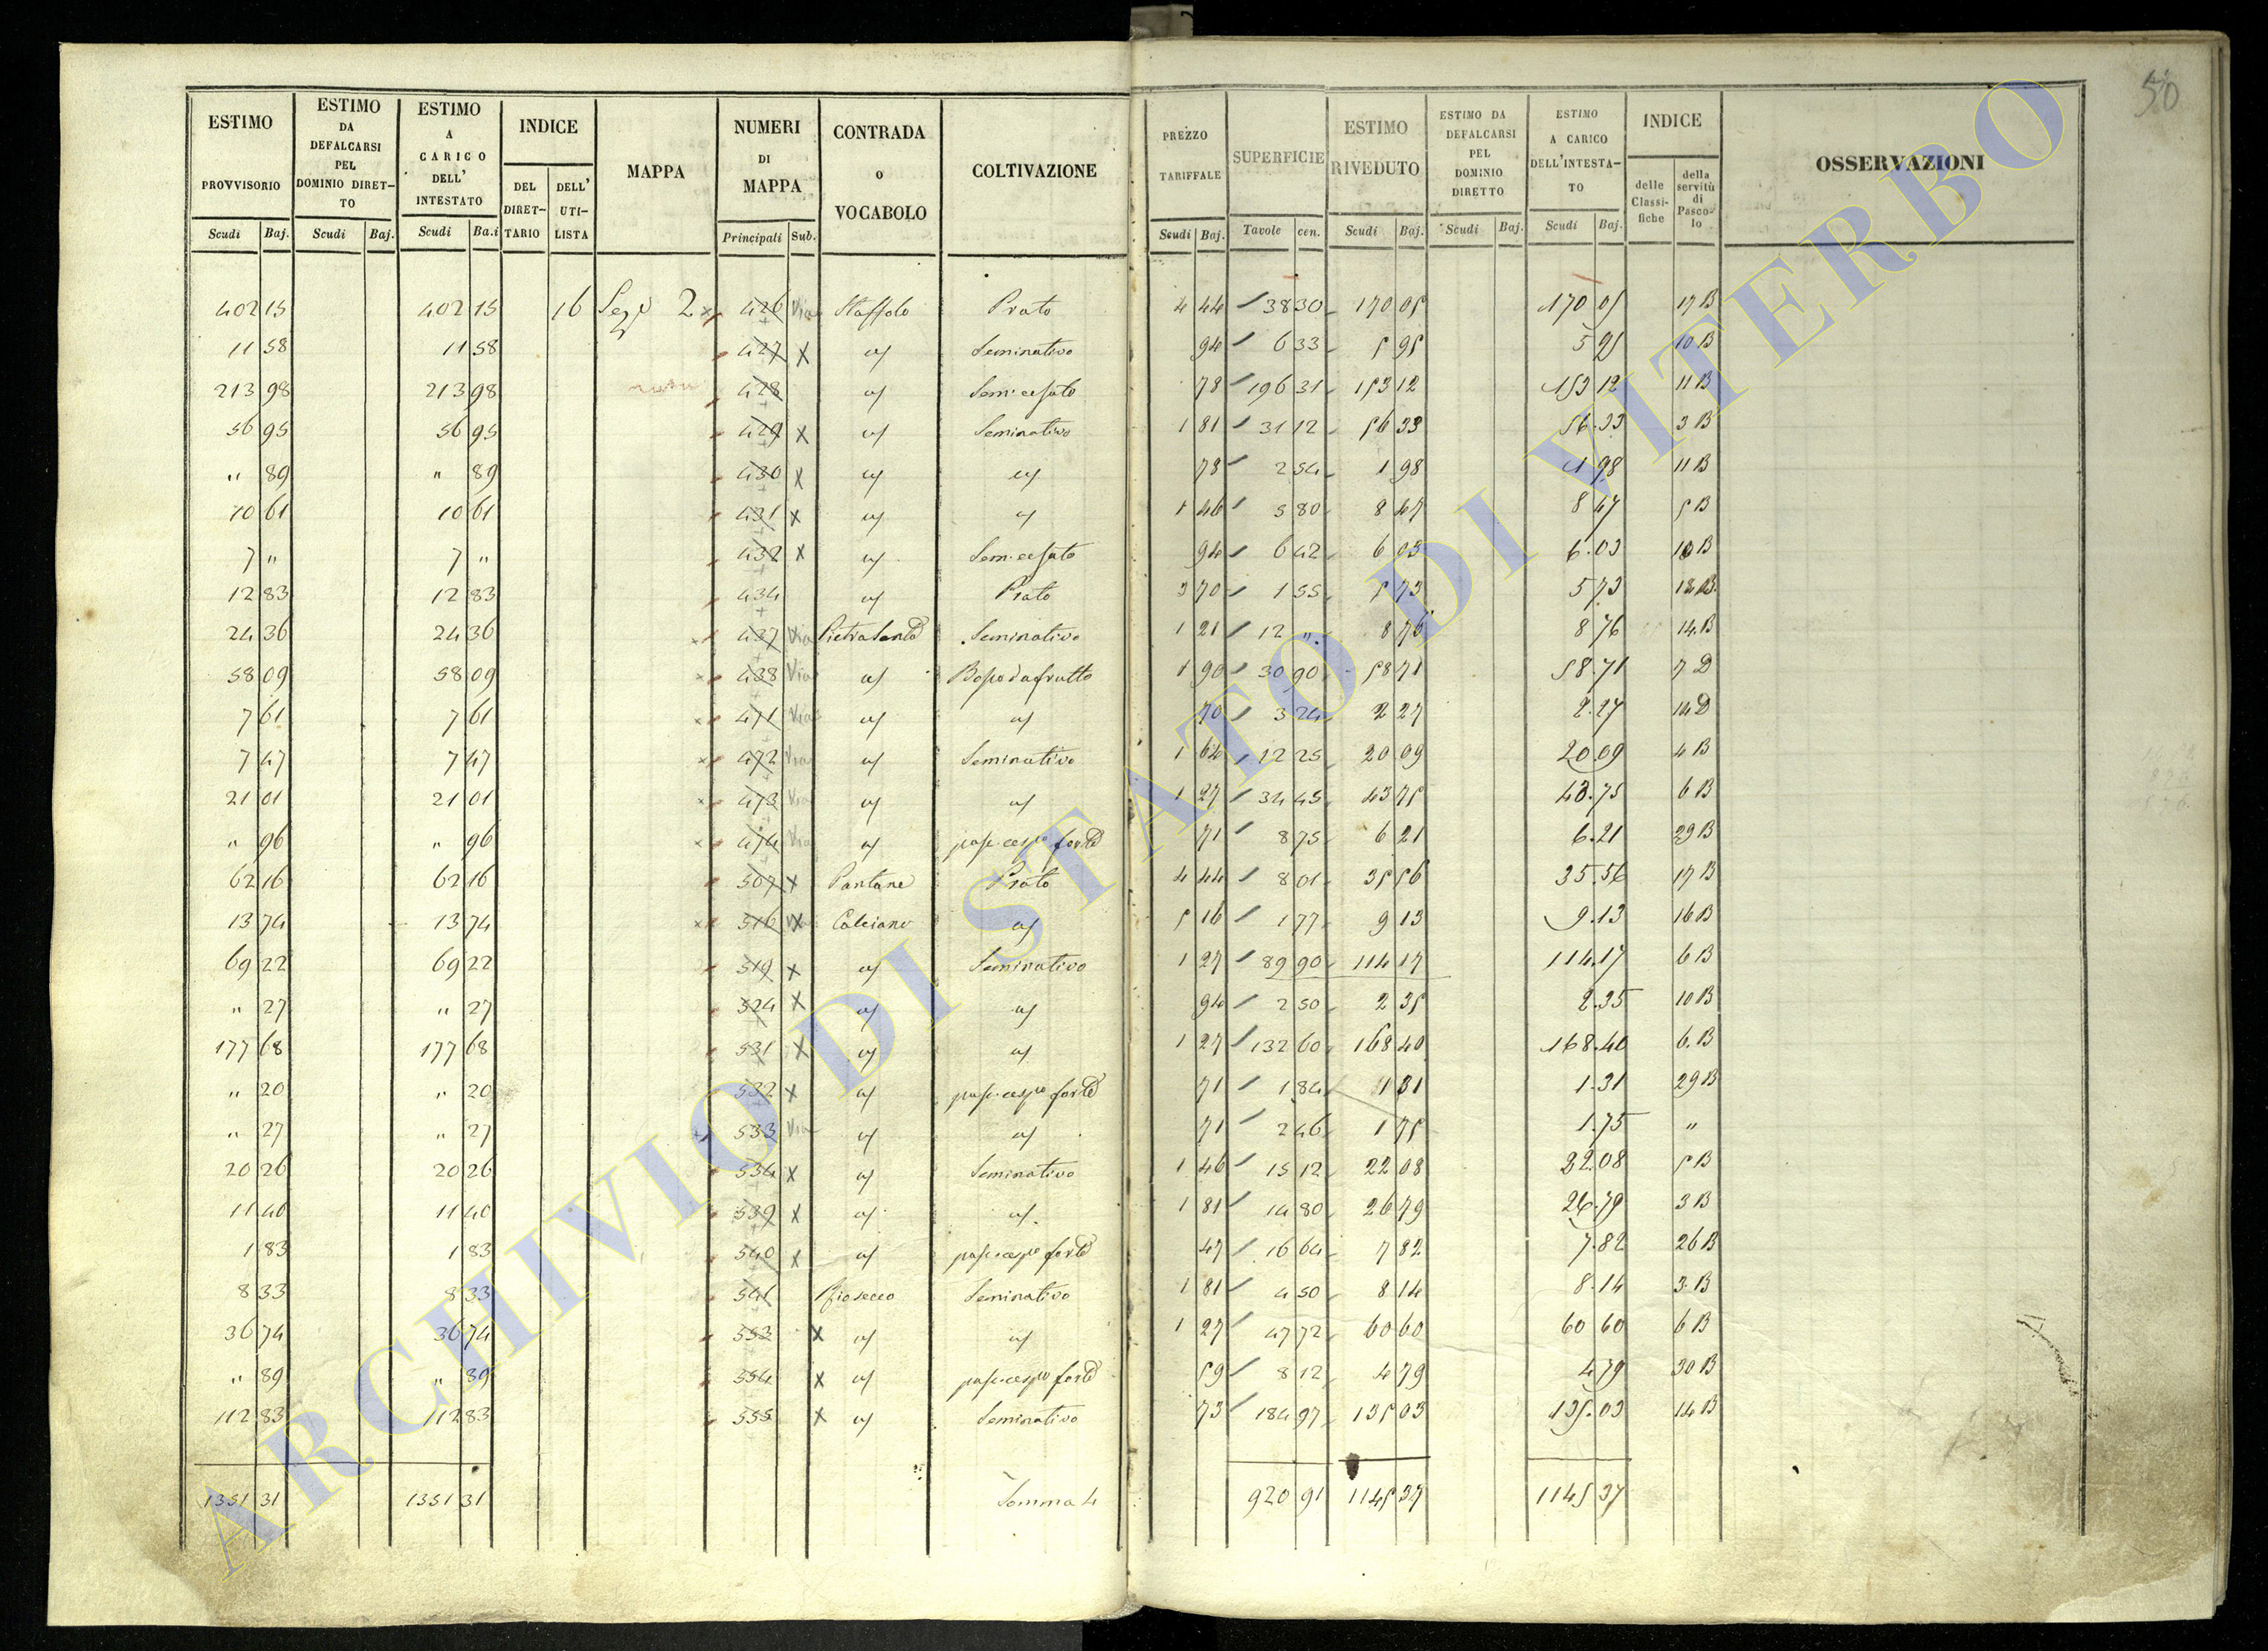 50
ESTIMO PROVVISORIO Scudi Baj. | ESTIMO DA DEFALCARSI PEL DOMINIO DIRETTO Scudi Baj. | ESTIMO A CARICO DELL' INTESTATO Scudi Ba.i | INDICE DEL DIRETTARIO DELL' UTILISTA | MAPPA | NUMERI DI MAPPA Principali Sub. | CONTRADA o VOCABOLO | COLTIVAZIONE | PREZZO TARIFFALE Scudi Baj. | SUPERFICIE Tavole cen. | ESTIMO RIVEDUTO Scudi Baj. | ESTIMO DA DEFALCARSI PEL DOMINIO DIRETTO Scudi Baj. | ESTIMO A CARICO DELL'INTESTATO Scudi Baj. | INDICE delle Classifiche della servitù di Pascolo | OSSERVAZIONI
402 15 | 402 15 | 16 | 2 | 426 Via | Staffolo | Prato | 4 44 | 38 30 | 170 05 | 170 05 | 17 B
11 58 | 11 58 | 427 X | a/ | Seminativo | 94 | 6 33 | 5 95 | 5 95 | 10 B
213 98 | 213 98 | 428 | a/ | Sem. cesato | 78 | 196 31 | 153 12 | 153 12 | 11 B
56 95 | 56 95 | 429 X | a/ | Seminativo | 1 81 | 31 12 | 56 33 | 56.33 | 3 B
" 89 | " 89 | 430 X | a/ | a/ | 78 | 2 54 | 1 98 | 1 98 | 11 B
10 61 | 10 61 | 431 X | a/ | a/ | 1 46 | 5 80 | 8 47 | 8 47 | 5 B
7 " | 7 " | 432 X | a/ | Sem. cesato | 94 | 6 42 | 6 03 | 6.03 | 10 B
12 83 | 12 83 | 434 | a/ | Prato | 3 70 | 1 55 | 5 73 | 5 73 | 18 B.
24 36 | 24 36 | 437 Via | | Seminativo | 1 21 | 12 " | 8 76 | 8 76 | 14. B
58 09 | 58 09 | 438 Via | a/ | Bosco da frutto | 1 90 | 30 90 | 58 71 | 58.71 | 7 D
7 61 | 7 61 | 471 Via | a/ | a/ | 70 | 3 24 | 2 27 | 2.27 | 14 D
7 47 | 7 47 | 472 Via | a/ | Seminativo | 1 64 | 12 25 | 20 09 | 20.09 | 4 B
21 01 | 21 01 | 473 Via | a/ | a/ | 1 27 | 34 45 | 43 75 | 43.75 | 6 B
" 96 | " 96 | 474 Via | a/ | pasc. cesp.o forte | 71 | 8 75 | 6 21 | 6.21 | 29 B
62 16 | 62 16 | 507 X | Pantane | Prato | 4 44 | 8 01 | 35 56 | 35.56 | 17 B
13 74 | 13 74 | 516 X | Calciano | a/ | 5 16 | 1 77 | 9 13 | 9.13 | 16 B
69 22 | 69 22 | 519 X | a/ | Seminativo | 1 27 | 89 90 | 114 17 | 114.17 | 6 B
" 27 | " 27 | 524 X | a/ | a/ | 94 | 2 50 | 2 35 | 2.35 | 10 B
177 68 | 177 68 | 531 X | a/ | a/ | 1 27 | 132 60 | 168 40 | 168.40 | 6. B
" 20 | " 20 | 532 X | a/ | pasc. cesp.o forte | 71 | 1 84 | 1 31 | 1.31 | 29 B
" 27 | " 27 | 533 Via | a/ | a/ | 71 | 2 46 | 1 75 | 1.75 | "
20 26 | 20 26 | 534 X | a/ | Seminativo | 1 46 | 15 12 | 22 08 | 22.08 | 5 B
11 40 | 11 40 | 539 X | a/ | a/. | 1 81 | 14 80 | 26 79 | 26.79 | 3 B
1 83 | 1 83 | 540 X | a/ | pasc. cesp.o forte | 47 | 16 64 | 7 82 | 7.82 | 26 B
8 33 | 8 33 | 541 | Riosecco | Seminativo | 1 81 | 4 50 | 8 14 | 8.14 | 3. B
36 74 | 36 74 | 553 X | a/ | a/ | 1 27 | 47 72 | 60 60 | 60 60 | 6 B
" 89 | " 89 | 554 X | a/ | pasc. cesp.o forte | 59 | 8 12 | 4 79 | 4 79 | 30 B
112 83 | 112 83 | 555 X | a/ | Seminativo | 73 | 184 97 | 135 03 | 135.03 | 14 B
1351 31 | 1351 31 | Somma 4 | 920 91 | 1145 37 | 1145 37
ARCHIVIO DI STATO DI VITERBO